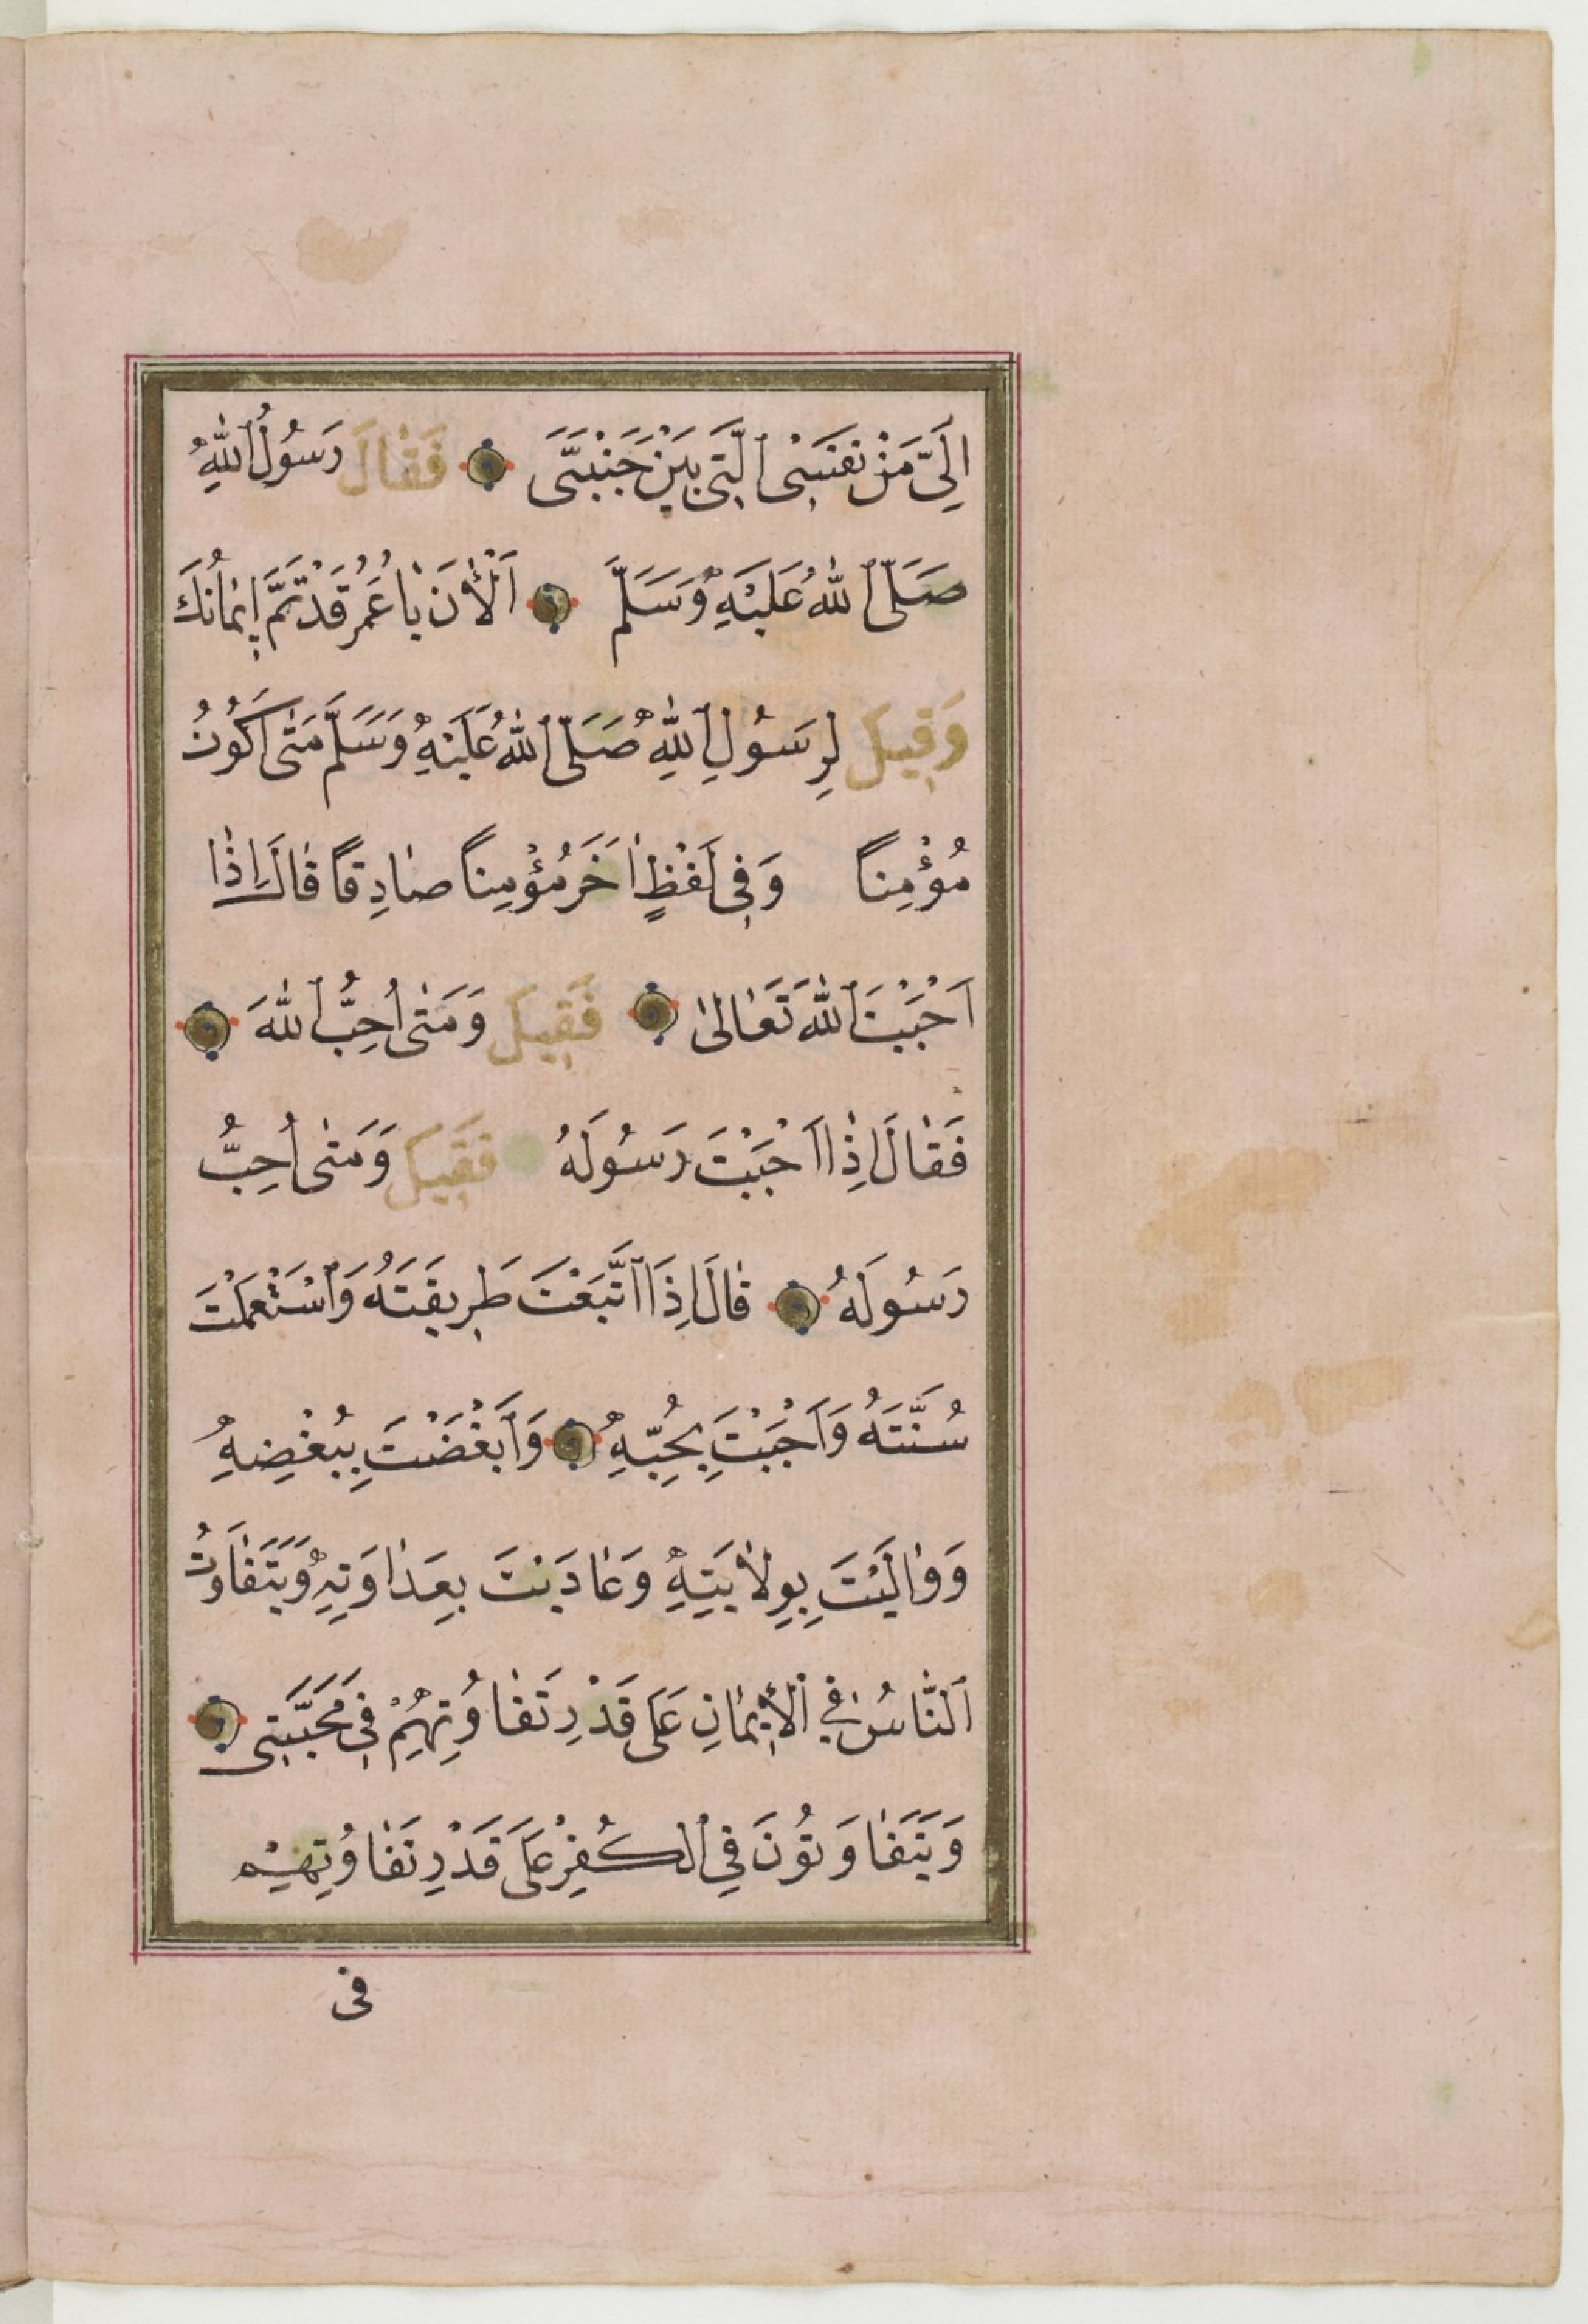 اِلَىَّ مَنْ نَفْسِىَ الَّتِى بَيْنَ جَنْبَىَّ فَقَالَ رَسُولُ اللّٰهِ
صَلَّى اللّٰهُ عَلَيْهِ وَسَلَّمَ اَلْاٰنَ يَا عُمَرُ قَدْ تَمَّ اِيمَانُكَ
وَقِيلَ لِرَسُولِ اللّٰهِ صَلَّى اللّٰهُ عَلَيْهِ وَسَلَّمَ مَتٰى اَكُونُ
مُؤْمِنًا وَفِى لَفْظٍ اٰخَرَ مُؤْمِنًا صَادِقًا قَالَ اِذَا
اَحْبَبْتَ اللّٰهَ تَعَالىٰ فَقِيلَ وَمَتٰى اُحِبُّ اللّٰهَ
فَقَالَ اِذَا اَحْبَبْتَ رَسُولَهُ فَقِيلَ وَمَتٰى اُحِبُّ
رَسُولَهُ قَالَ اِذَا اتَّبَعْتَ طَرِيقَتَهُ وَاسْتَعْمَلْتَ
سُنَّتَهُ وَاَحْبَبْتَ بِحُبِّهِ وَاَبْغَضْتَ بِبُغْضِهِ
وَوَالَيْتَ بِوِلَايَتِهِ وَعَادَيْتَ بِعَدَاوَتِهِ وَيَتَفَاوَتُ
اَلنَّاسُ فِي الْاِيمَانِ عَلَى قَدْرِ تَفَاوُتِهِمْ فِى مَحَبَّتِى
وَيَتَفَاوَتُونَ فِي الْكُفْرِ عَلَى قَدْرِ تَفَاوُتِهِمْ
فى